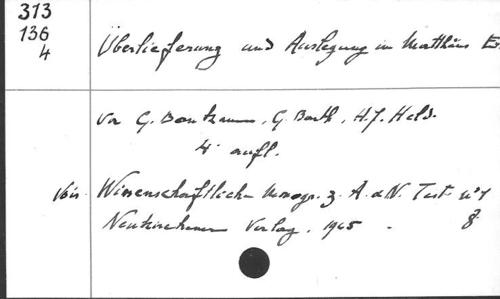 313
136
4
Überlieferung und Auslegung im Matthäus E.
Von G. Bornkamm, G. Barth, H.J. Held.
4. aufl.
Voir Wissenschaftliche Monogr. z. A. u N. Test. n° 1
Neukirchener Verlag. 1965 - 8